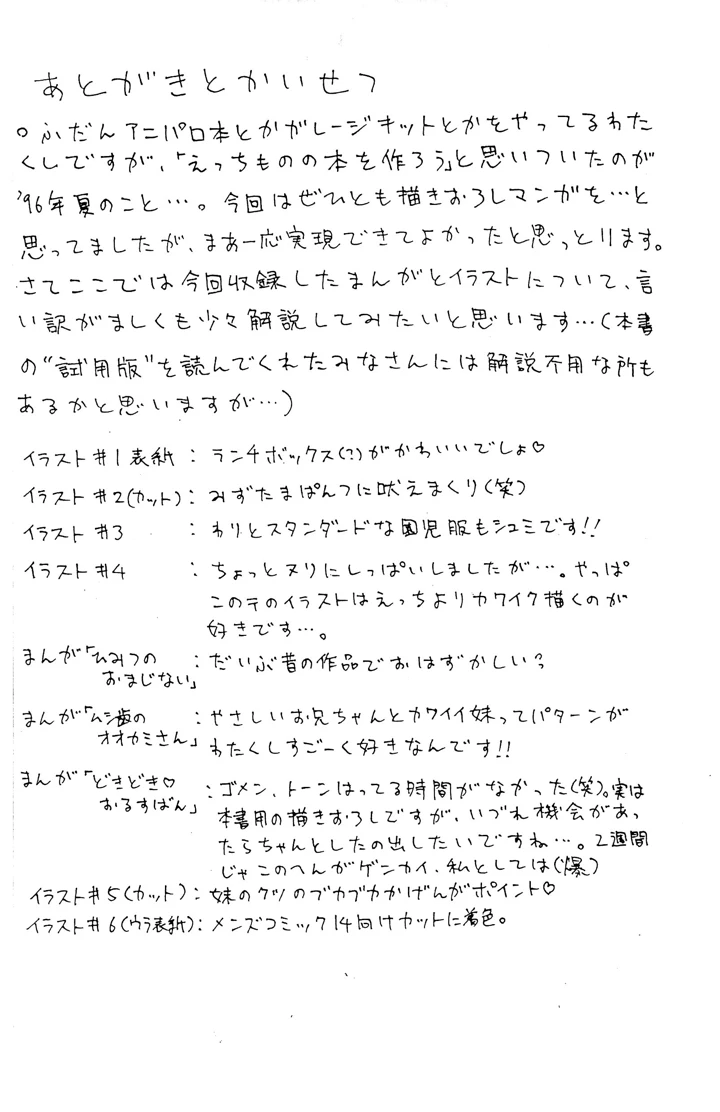 あとがきとかいせつ
○ふだんアニパロ本とかガレージキットとかをやってるわた
くしですが、「えっちものの本を作ろう」と思いついたのが
'96年夏のこと…。今回はぜひとも描きおろしマンガを…と
思ってましたが、まあ一応実現できてよかったと思っとります。
さてここでは今回収録したまんがとイラストについて、言
い訳がましくも少々解説してみたいと思います…(本書
の"試用版"を読んでくれたみなさんには解説不用な所も
あるかと思いますが…)
イラスト#1表紙：ランチボックス(?)がかわいいでしょ♡
イラスト#2(カット)：みずたまぱんつに吠えまくり(笑)
イラスト#3：わりとスタンダードな園児服もシュミです!!
イラスト#4：ちょっとヌリにしっぱいしましたが…。やっぱ
このテのイラストはえっちよりカワイク描くのが
好きです…。
まんが「ひみつの
おまじない」：だいぶ昔の作品でおはずかしい?
まんが「ムシ歯の
オオカミさん」：やさしいお兄ちゃんとカワイイ妹ってパターンが
わたくしすごーく好きなんです!!
まんが「どきどき♡
おるすばん」：ゴメン、トーンはってる時間がなかった(笑)。実は
本書用の描きおろしですが、いづれ機会があっ
たらちゃんとしたの出したいですね…。2週間
じゃこのへんがゲンカイ、私としては(爆)
イラスト#5(カット)：妹のクツのブカブカかげんがポイント♡
イラスト#6(ウラ表紙)：メンズコミック14向けカットに着色。